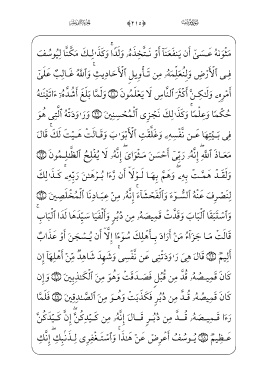 ﴿٢١٥﴾
مَثْوَىٰهُ عَسَىٰٓ أَن يَنفَعَنَآ أَوْ نَتَّخِذَهُۥ وَلَدًا ۚ وَكَذَٰلِكَ مَكَّنَّا لِيُوسُفَ
فِى ٱلْأَرْضِ وَلِنُعَلِّمَهُۥ مِن تَأْوِيلِ ٱلْأَحَادِيثِ ۚ وَٱللَّهُ غَالِبٌ عَلَىٰٓ
أَمْرِهِۦ وَلَٰكِنَّ أَكْثَرَ ٱلنَّاسِ لَا يَعْلَمُونَ ۝ وَلَمَّا بَلَغَ أَشُدَّهُۥٓ ءَاتَيْنَٰهُ
حُكْمًا وَعِلْمًا ۚ وَكَذَٰلِكَ نَجْزِى ٱلْمُحْسِنِينَ ۝ وَرَٰوَدَتْهُ ٱلَّتِى هُوَ
فِى بَيْتِهَا عَن نَّفْسِهِۦ وَغَلَّقَتِ ٱلْأَبْوَٰبَ وَقَالَتْ هَيْتَ لَكَ ۚ قَالَ
مَعَاذَ ٱللَّهِ ۖ إِنَّهُۥ رَبِّىٓ أَحْسَنَ مَثْوَاىَ ۖ إِنَّهُۥ لَا يُفْلِحُ ٱلظَّٰلِمُونَ ۝
وَلَقَدْ هَمَّتْ بِهِۦ ۖ وَهَمَّ بِهَا لَوْلَآ أَن رَّءَا بُرْهَٰنَ رَبِّهِۦ ۚ كَذَٰلِكَ
لِنَصْرِفَ عَنْهُ ٱلسُّوٓءَ وَٱلْفَحْشَآءَ ۚ إِنَّهُۥ مِنْ عِبَادِنَا ٱلْمُخْلَصِينَ ۝
وَٱسْتَبَقَا ٱلْبَابَ وَقَدَّتْ قَمِيصَهُۥ مِن دُبُرٍ وَأَلْفَيَا سَيِّدَهَا لَدَا ٱلْبَابِ ۚ
قَالَتْ مَا جَزَآءُ مَنْ أَرَادَ بِأَهْلِكَ سُوٓءًا إِلَّآ أَن يُسْجَنَ أَوْ عَذَابٌ
أَلِيمٌ ۝ قَالَ هِىَ رَٰوَدَتْنِى عَن نَّفْسِى ۚ وَشَهِدَ شَاهِدٌ مِّنْ أَهْلِهَآ إِن
كَانَ قَمِيصُهُۥ قُدَّ مِن قُبُلٍ فَصَدَقَتْ وَهُوَ مِنَ ٱلْكَٰذِبِينَ ۝ وَإِن
كَانَ قَمِيصُهُۥ قُدَّ مِن دُبُرٍ فَكَذَبَتْ وَهُوَ مِنَ ٱلصَّٰدِقِينَ ۝ فَلَمَّا
رَءَا قَمِيصَهُۥ قُدَّ مِن دُبُرٍ قَالَ إِنَّهُۥ مِن كَيْدِكُنَّ ۖ إِنَّ كَيْدَكُنَّ
عَظِيمٌ ۝ يُوسُفُ أَعْرِضْ عَنْ هَٰذَا ۚ وَٱسْتَغْفِرِى لِذَنۢبِكِ ۖ إِنَّكِ